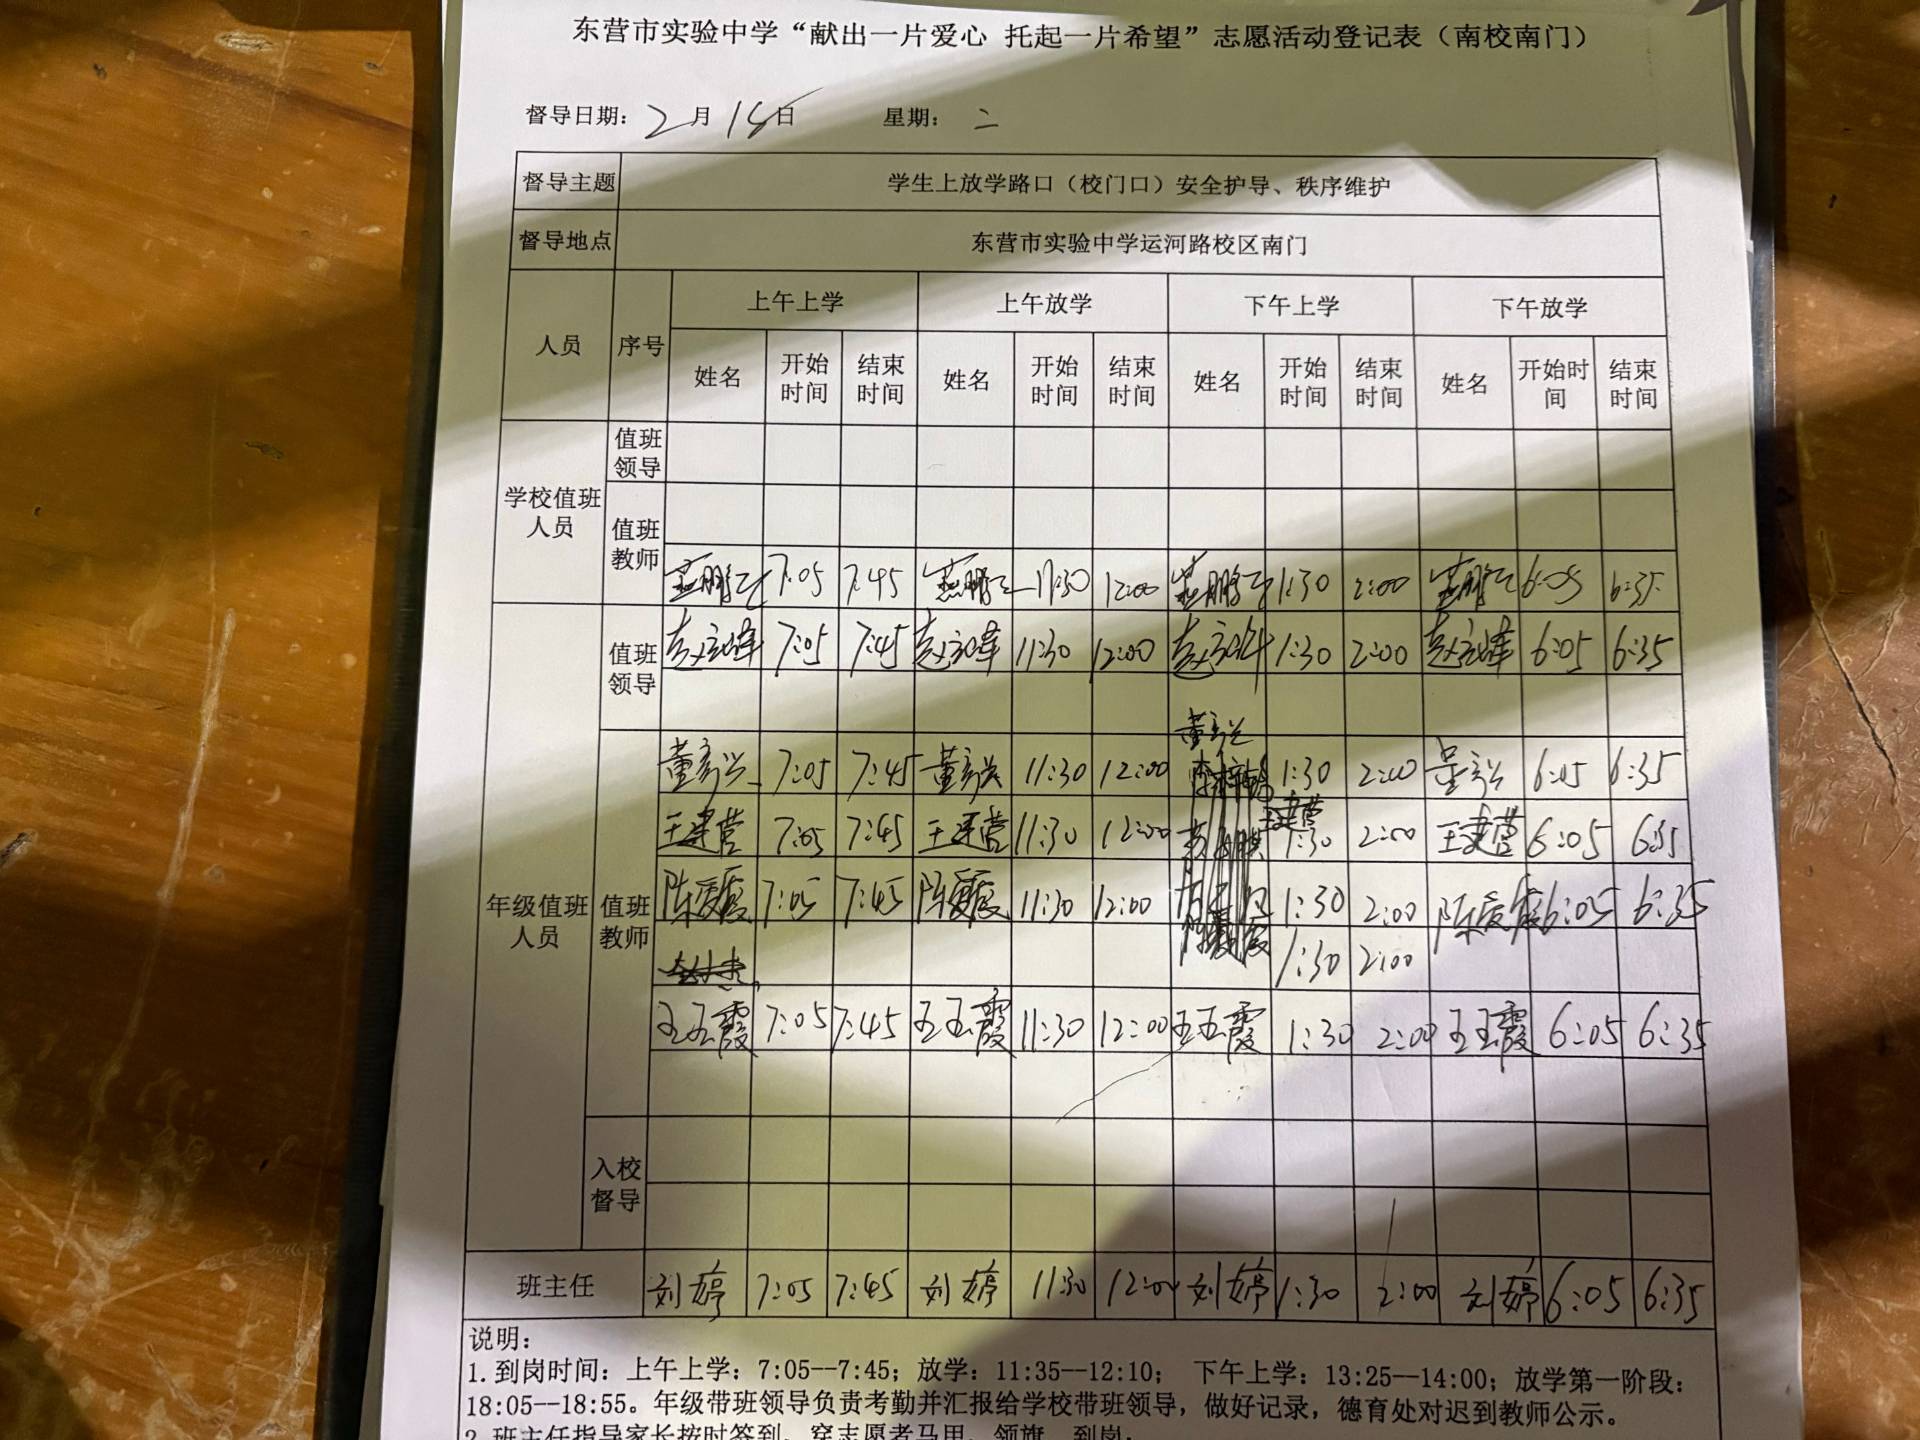 东营市实验中学“献出一片爱心 托起一片希望”志愿活动登记表（南校南门）
督导日期： 2月 18日 星期： 二
督导主题 学生上放学路口（校门口）安全护导、秩序维护
督导地点 东营市实验中学运河路校区南门
人员 序号 上午上学 上午放学 下午上学 下午放学
姓名 开始时间 结束时间 姓名 开始时间 结束时间 姓名 开始时间 结束时间 姓名 开始时间 结束时间
学校值班人员 值班领导
值班教师
7:05 7:45 11:30 12:00 1:30 2:00 6:05 6:35
年级值班人员 值班领导 7:05 7:45 11:30 12:00 1:30 2:00 6:05 6:35
值班教师
董彦兴 7:05 7:45 董彦兴 11:30 12:00 董彦兴 1:30 2:00 董彦兴 6:05 6:35
王建营 7:05 7:45 王建营 11:30 12:00 王建营 1:30 2:00 王建营 6:05 6:35
陈爱霞 7:05 7:45 陈爱霞 11:30 12:00 1:30 2:00 陈爱霞 6:05 6:35
1:30 2:00
王玉霞 7:05 7:45 王玉霞 11:30 12:00 王玉霞 1:30 2:00 王玉霞 6:05 6:35
入校督导
班主任 刘婷 7:05 7:45 刘婷 11:30 12:00 刘婷 1:30 2:00 刘婷 6:05 6:35
说明：
1.到岗时间：上午上学：7:05--7:45；放学：11:35--12:10； 下午上学：13:25--14:00；放学第一阶段：
18:05--18:55。年级带班领导负责考勤并汇报给学校带班领导，做好记录，德育处对迟到教师公示。
2.班主任指导家长按时签到、穿志愿者马甲、领旗、到岗；